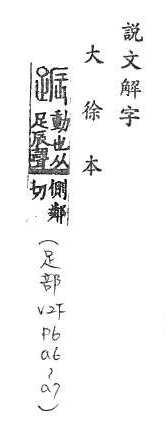 說文解字
大徐本
動也从
足辰聲
側鄰
切
(足部
V2F
P6
a6
~
a7)